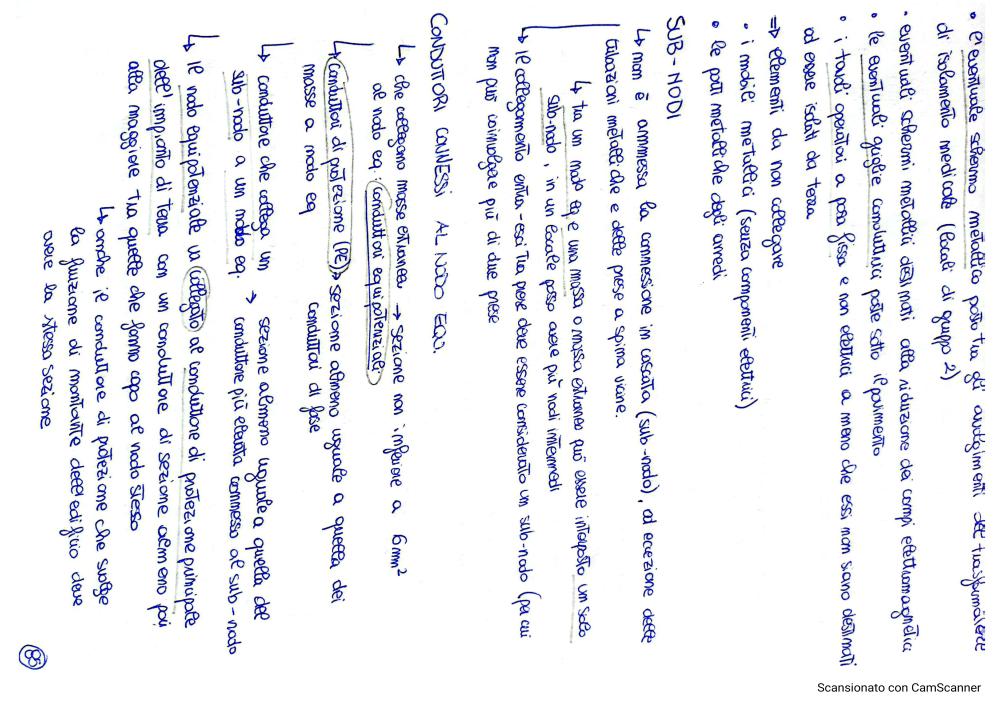 • l'eventuale schermo metallico posto tra gli avvolgimenti del trasformatore
di isolamento medicale (locali di gruppo 2)
• eventuali schermi metallici destinati alla riduzione dei campi elettromagnetici
• le eventuali griglie conduttrici poste sotto il pavimento
• i tavoli operatori a posa fissa e non elettrici a meno che essi non siano destinati
ad essere isolati da terra
⇒ elementi da non collegare
• i mobili metallici (senza componenti elettrici)
• le parti metalliche degli arredi
SUB-NODI
↳ non è ammessa la connessione in cascata (sub-nodo), ad eccezione delle
tubazioni metalliche e delle prese a spina vicine.
↳ tra un nodo eq. e una massa o massa estranea può essere interposto un solo
sub-nodo, in un locale posso avere più nodi intermedi
↳ il collegamento entra-esci tra prese deve essere considerato un sub-nodo (per cui
non può coinvolgere più di due prese
CONDUTTORI CONNESSI AL NODO EQU.
↳ che collegano masse estranee → sezione non inferiore a 6 mm²
al nodo eq: conduttori equipotenziali
↳ conduttori di protezione (PE) → sezione almeno uguale a quella dei
masse a nodo eq conduttori di fase
↳ conduttore che collega un → sezione almeno uguale a quella del
sub-nodo a un nodo eq. conduttore più elevata connesso al sub-nodo
↳ il nodo equipotenziale va collegato al conduttore di protezione principale
dell'impianto di terra con un conduttore di sezione almeno pari
alla maggiore tra quelle che fanno capo al nodo stesso
↳ anche il conduttore di protezione che svolge
la funzione di montante dell'edificio deve
avere la stessa sezione
85
Scansionato con CamScanner